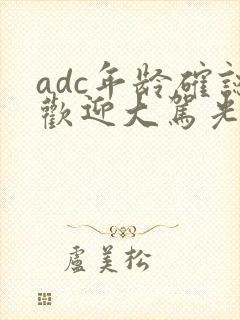 adc年龄確認
歡迎大駕光
盧美松